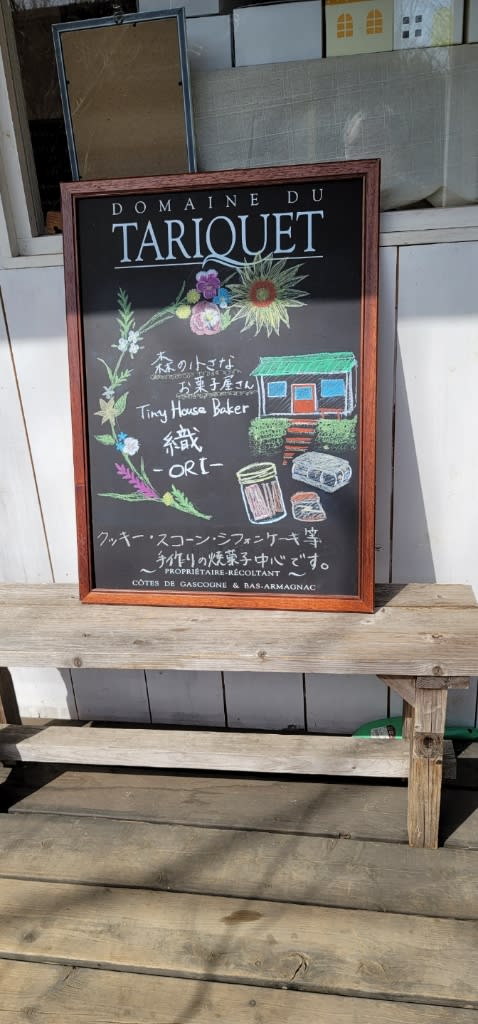 DOMAINE DU
TARIQUET
森の小さな
お菓子屋さん
Tiny House Baker
織
-ORI-
クッキー・スコーン・シフォンケーキ等
手作りの焼菓子中心です。
PROPRIÉTAIRE-RÉCOLTANT
CÔTES DE GASCOGNE & BAS-ARMAGNAC